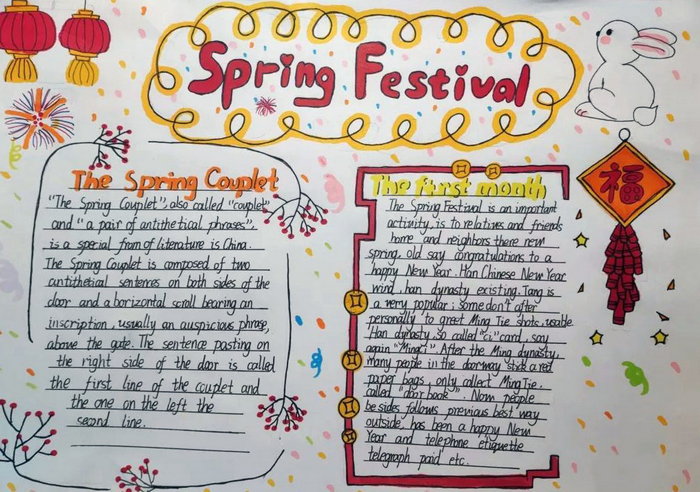 Spring Festival
The Spring Couplet
"The Spring Couplet", also called "couplet"
and "a pair of antithetical phrases",
is a special from of literature is China.
The Spring Couplet is composed of two
antithetical sentences on both sides of the
door and a borizontal scroll bearing an
inscription, usually an auspicious phrase,
above the gate. The sentence pasting on
the right side of the door is called
the first line of the couplet and
the one on the left the
second line.
The first month
The Spring Festival is an important
activity, is to relatives and friends
home and neighbors there new
spring, old say congratulations to a
happy New Year. Han Chinese New Year
wind, han dynasty existing. Tang is
a very popular; some don't after
personally to greet Ming Tie shots, usable
Han dynasty so called "ci" card, say
again "Mingci". After the Ming dynasty,
many people in the doorway stick a red
paper bags, only collect Ming Tie,
called "door book". Now people
besides follows previous best way
outside, has been a happy New
Year and telephne etiquette
telegraph paid etc.
福